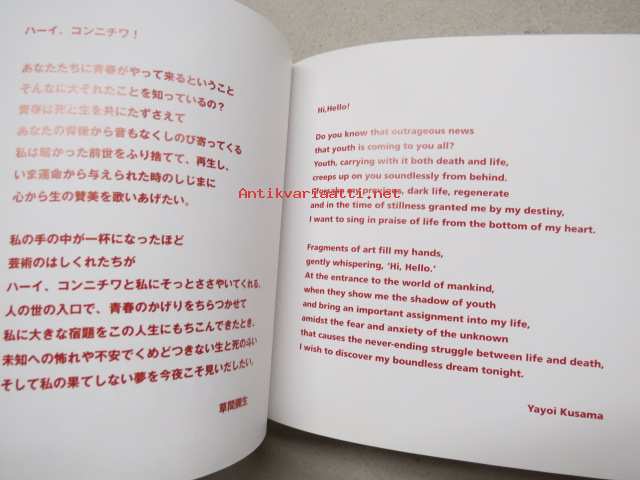 ハーイ、コンニチワ！
あなたたちに青春がやって来るということ
そんなに大それたことを知っているの？
青春は死と生を共にたずさえて
あなたの背後から音もなくしのび寄ってくる
私は暗かった前世をふり捨てて、再生し、
いま運命から与えられた時のしじまに
心から生の賛美を歌いあげたい。
私の手の中が一杯になったほど
芸術のはしくれたちが
ハーイ、コンニチワと私にそっとささやいてくれる。
人の世の入口で、青春のかげりをちらつかせて
私に大きな宿題をこの人生にもちこんできたとき、
未知への怖れや不安でくめどつきない生と死の斗い
そして私の果てしない夢を今夜こそ見いだしたい。
草間彌生
Hi,Hello!
Do you know that outrageous news
that youth is coming to you all?
Youth, carrying with it both death and life,
creeps up on you soundlessly from behind.
my previous, dark life, regenerate
and in the time of stillness granted me by my destiny,
I want to sing in praise of life from the bottom of my heart.
Fragments of art fill my hands,
gently whispering, 'Hi, Hello.'
At the entrance to the world of mankind,
when they show me the shadow of youth
and bring an important assignment into my life,
amidst the fear and anxiety of the unknown
that causes the never-ending struggle between life and death,
I wish to discover my boundless dream tonight.
Yayoi Kusama
Antikvariaatti.net